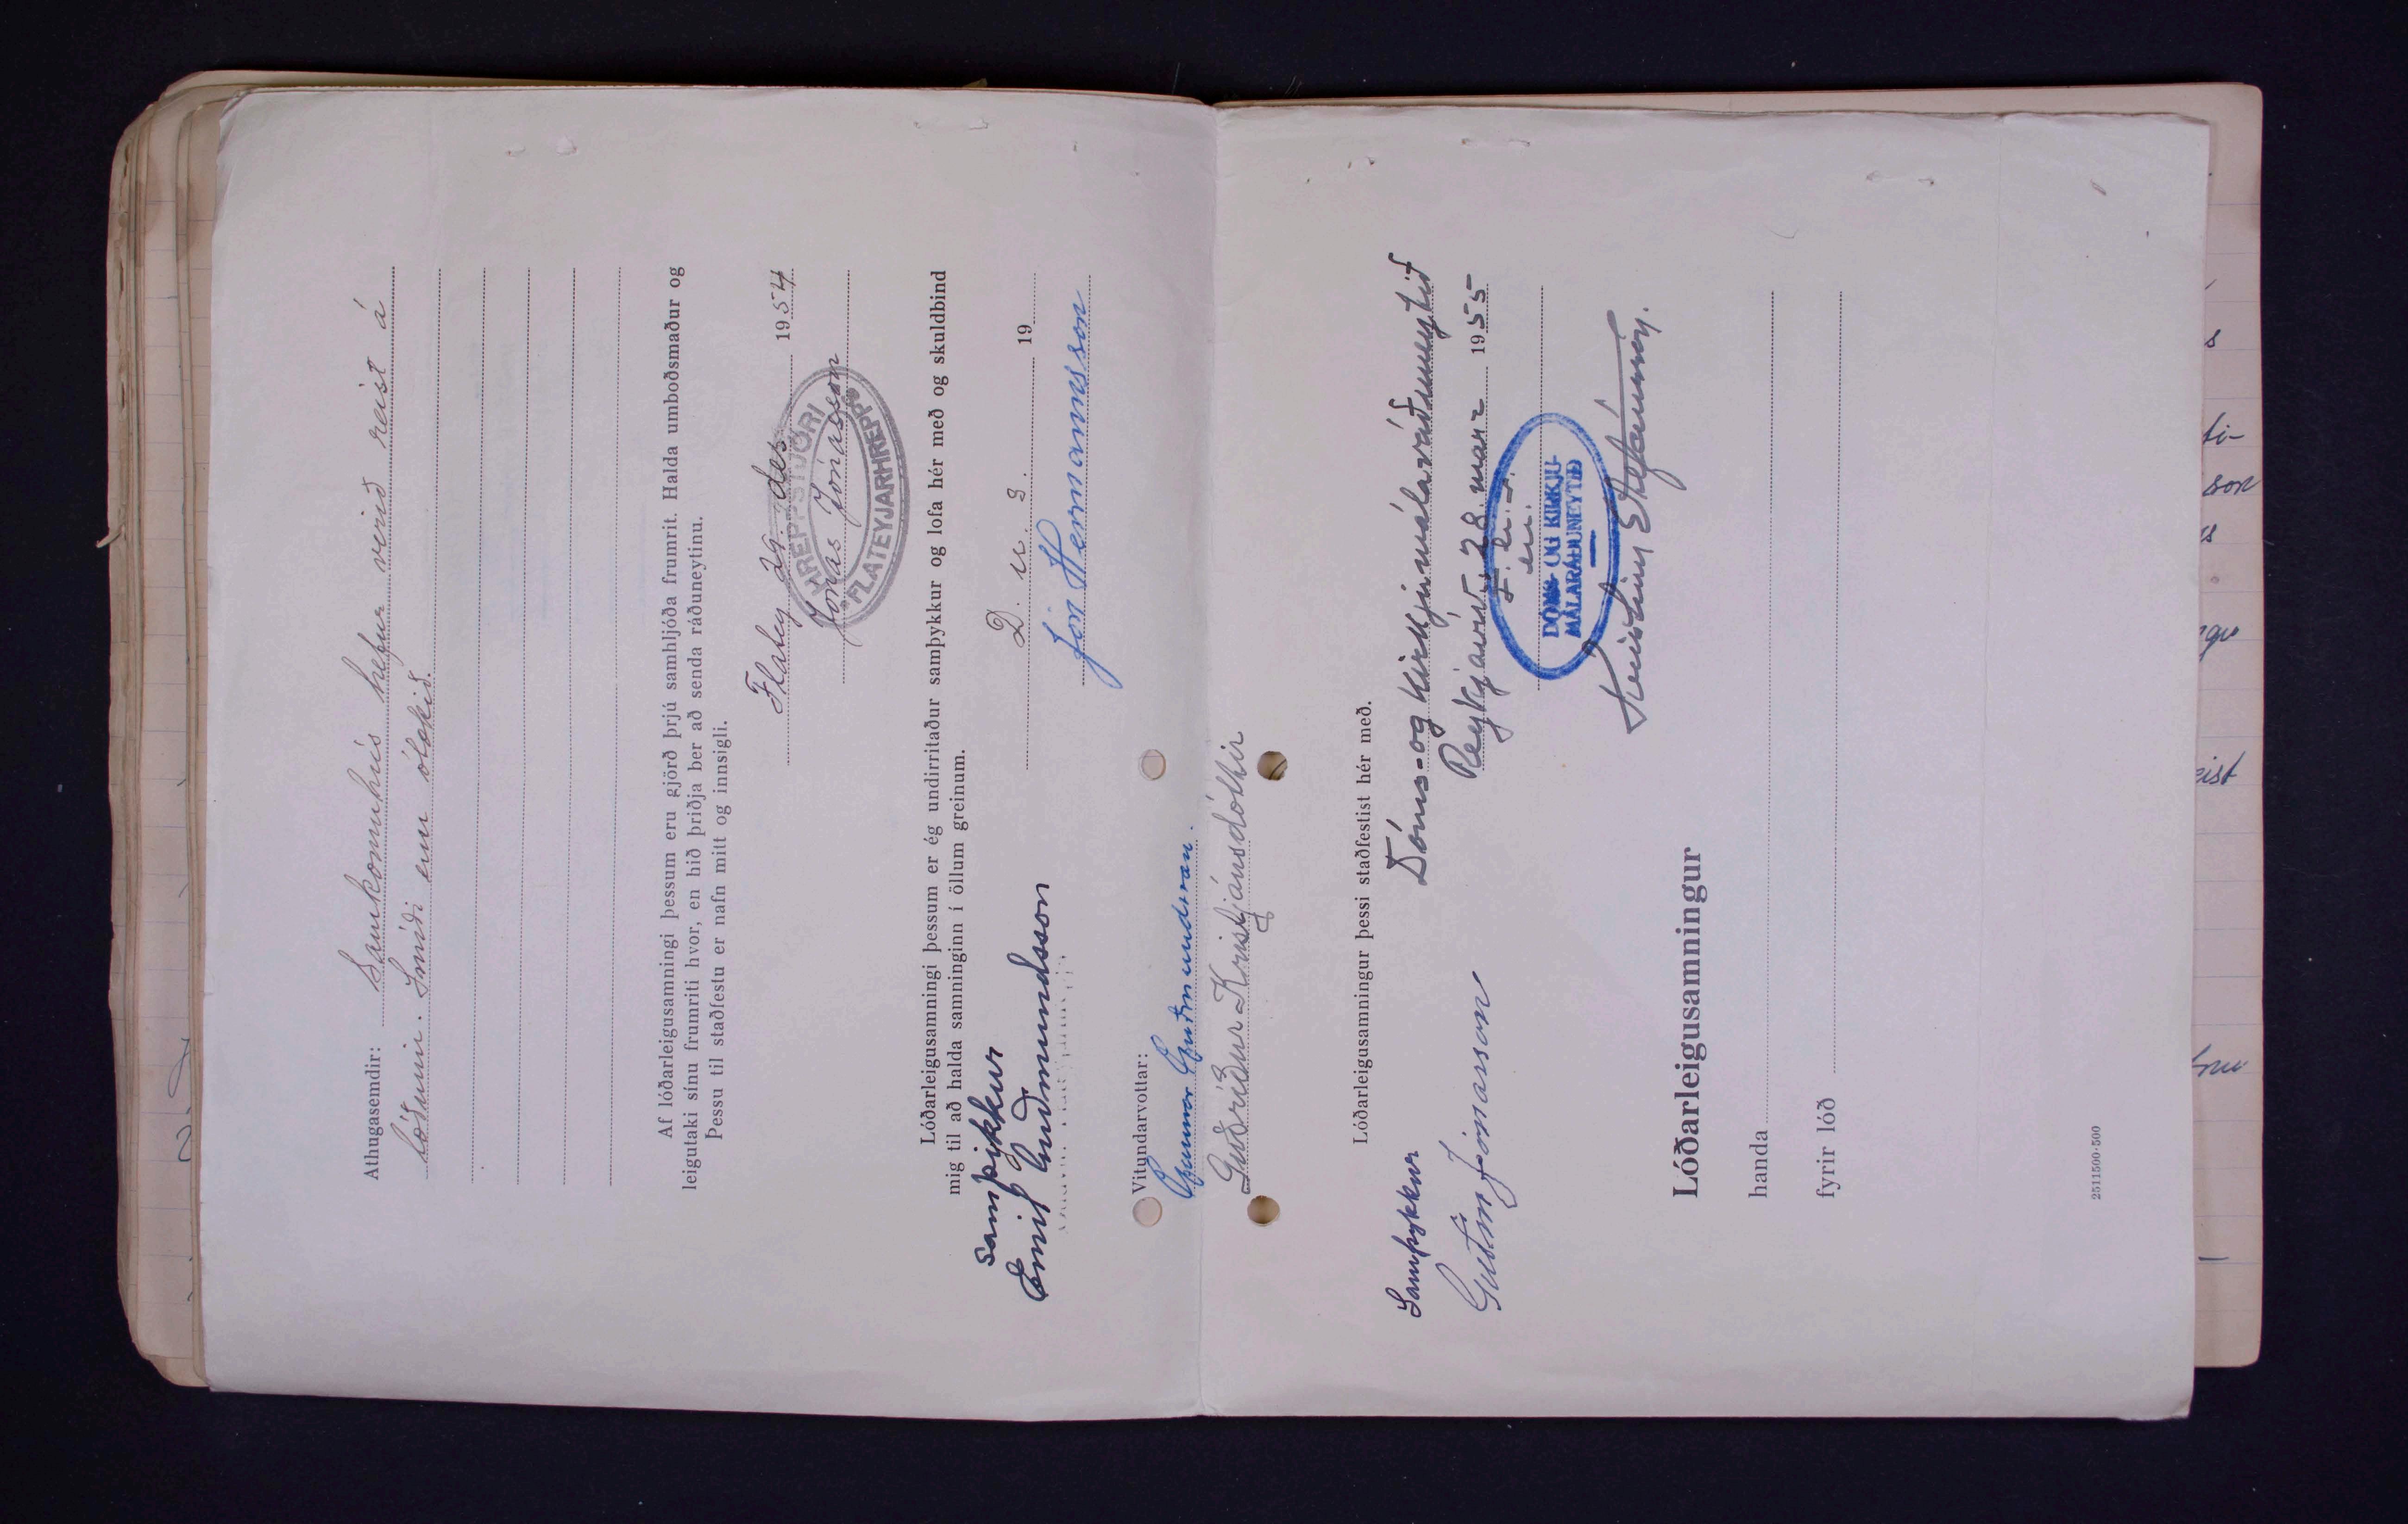 Athugasemdir: Samkomuhús hefur verið reist á
lóðinni. Smíði enn ólokið.
Af lóðarleigusamningi þessum eru gjörð þrjú samhljóða frumrit. Halda umboðsmaður og
leigutaki sínu frumriti hvor, en hið þriðja ber að senda ráðuneytinu.
Þessu til staðfestu er nafn mitt og innsigli.
Flatey 29. des 1954
Jónas Jónasson
HREPPSTJÓRI
FLATEYJARHREPPS
Lóðarleigusamningi þessum er ég undirritaður samþykkur og lofa hér með og skuldbind
mig til að halda samninginn í öllum greinum.
D. u. s. 19
Jón Hermannsson
samþykkur
Emil Guðmundsson
Vitundarvottar:
Gunnar Guðmundsson.
Guðríður Kristjánsdóttir
Lóðarleigusamningur þessi staðfestist hér með.
Dóms- og kirkjumálaráðuneytið
Reykjavík, 28. marz 1955
F. h. r.
e.u.
DÓMS- OG KIRKJU-
MÁLARÁÐUNEYTIÐ
Samþykkur
Guðm Jónasson
Lóðarleigusamningur
handa
fyrir lóð
2511500·500